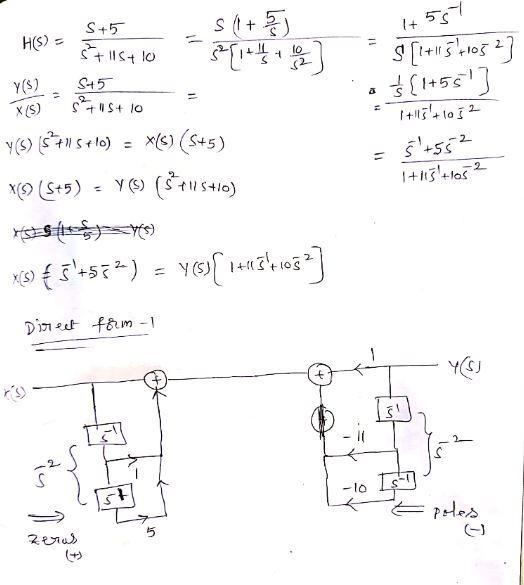 H(S) = S+5 / S²+11S+10 = S(1+5/S) / S²[1+11/S+10/S²] = 1+5S⁻¹ / S[1+11S⁻¹+10S⁻²]
Y(S)/X(S) = S+5 / S²+11S+10 = = 1/S[1+5S⁻¹] / 1+11S⁻¹+10S⁻²
Y(S)(S²+11S+10) = X(S)(S+5) = S⁻¹+5S⁻² / 1+11S⁻¹+10S⁻²
X(S)(S+5) = Y(S)(S²+11S+10)
X(S){S⁻¹+5S⁻²) = Y(S)[1+11S⁻¹+10S⁻²]
Direct form-1
X(S) + + 1 Y(S)
S⁻¹ + S⁻¹
S⁻² 1 -11 S⁻²
S⁻¹ -10 S⁻¹
5
zeros poles
(+) (-)